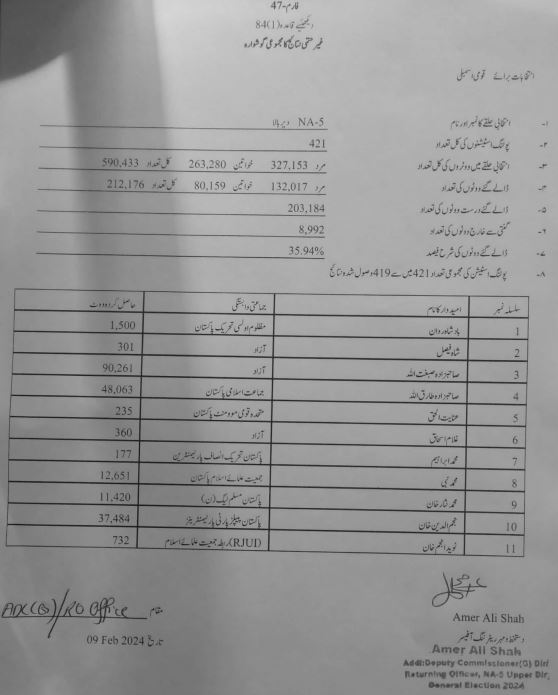 فارم-47
دیکھئیے قاعدہ (1)84
غیر حتمی نتائج کا مجموعی گوشوارہ
انتخابات برائے قومی اسمبلی
۱- انتخابی حلقے کا نمبر اور نام NA-5 دیر بالا
۲- پولنگ اسٹیشنوں کی کل تعداد 421
۳- انتخابی حلقے میں ووٹروں کی کل تعداد مرد 327,153 خواتین 263,280 کل تعداد 590,433
۴- ڈالے گئے ووٹوں کی تعداد مرد 132,017 خواتین 80,159 کل تعداد 212,176
۵- ڈالے گئے درست ووٹوں کی تعداد 203,184
۶- گنتی سے خارج ووٹوں کی تعداد 8,992
۷- ڈالے گئے ووٹوں کی شرح فیصد 35.94%
۸- پولنگ اسٹیشن کی مجموعی تعداد 421 میں سے 419 وصول شدہ نتائج
سلسلہ نمبر امیدوار کا نام جماعتی وابستگی حاصل کردہ ووٹ
1 بادشاہ وردان مظلوم اولسی تحریک پاکستان 1,500
2 شاہ فیصل آزاد 301
3 صاحبزادہ صبغت اللہ آزاد 90,261
4 صاحبزادہ طارق اللہ جماعت اسلامی پاکستان 48,063
5 عنایت الحق متحدہ قومی موومنٹ پاکستان 235
6 غلام اسحاق آزاد 360
7 محمد ابراہیم پاکستان تحریک انصاف پارلیمنٹرین 177
8 محمد نبی جمعیت علمائے اسلام پاکستان 12,651
9 محمد نثار خان پاکستان مسلم لیگ (ن) 11,420
10 نجم الدین خان پاکستان پیپلز پارٹی پارلیمنٹرینز 37,484
11 نوید انجم خان (RJUI) رابطہ جمعیت علمائے اسلام 732
مقام ADC(G)/RO Office
تاریخ 09 Feb 2024
Amer Ali Shah
دستخط و مہر ریٹرننگ آفیسر
Amer Ali Shah
Addl:Deputy Commissioner(G) Dir/
Returning Officer, NA-5 Upper Dir,
General Election 2024